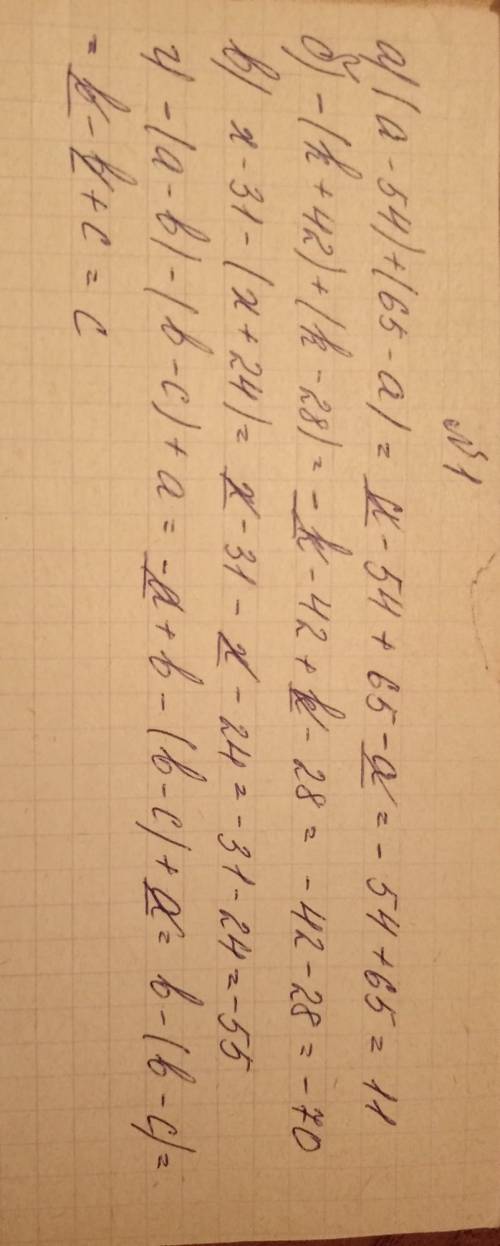 №1
а) (a - 54) + (65 - a) = a - 54 + 65 - a = - 54 + 65 = 11
б) - (k + 42) + (k - 28) = - k - 42 + k - 28 = - 42 - 28 = - 70
в) x - 31 - (x + 24) = x - 31 - x - 24 = - 31 - 24 = - 55
г) - (a - b) - (b - c) + a = - a + b - (b - c) + a = b - (b - c) =
= b - b + c = c